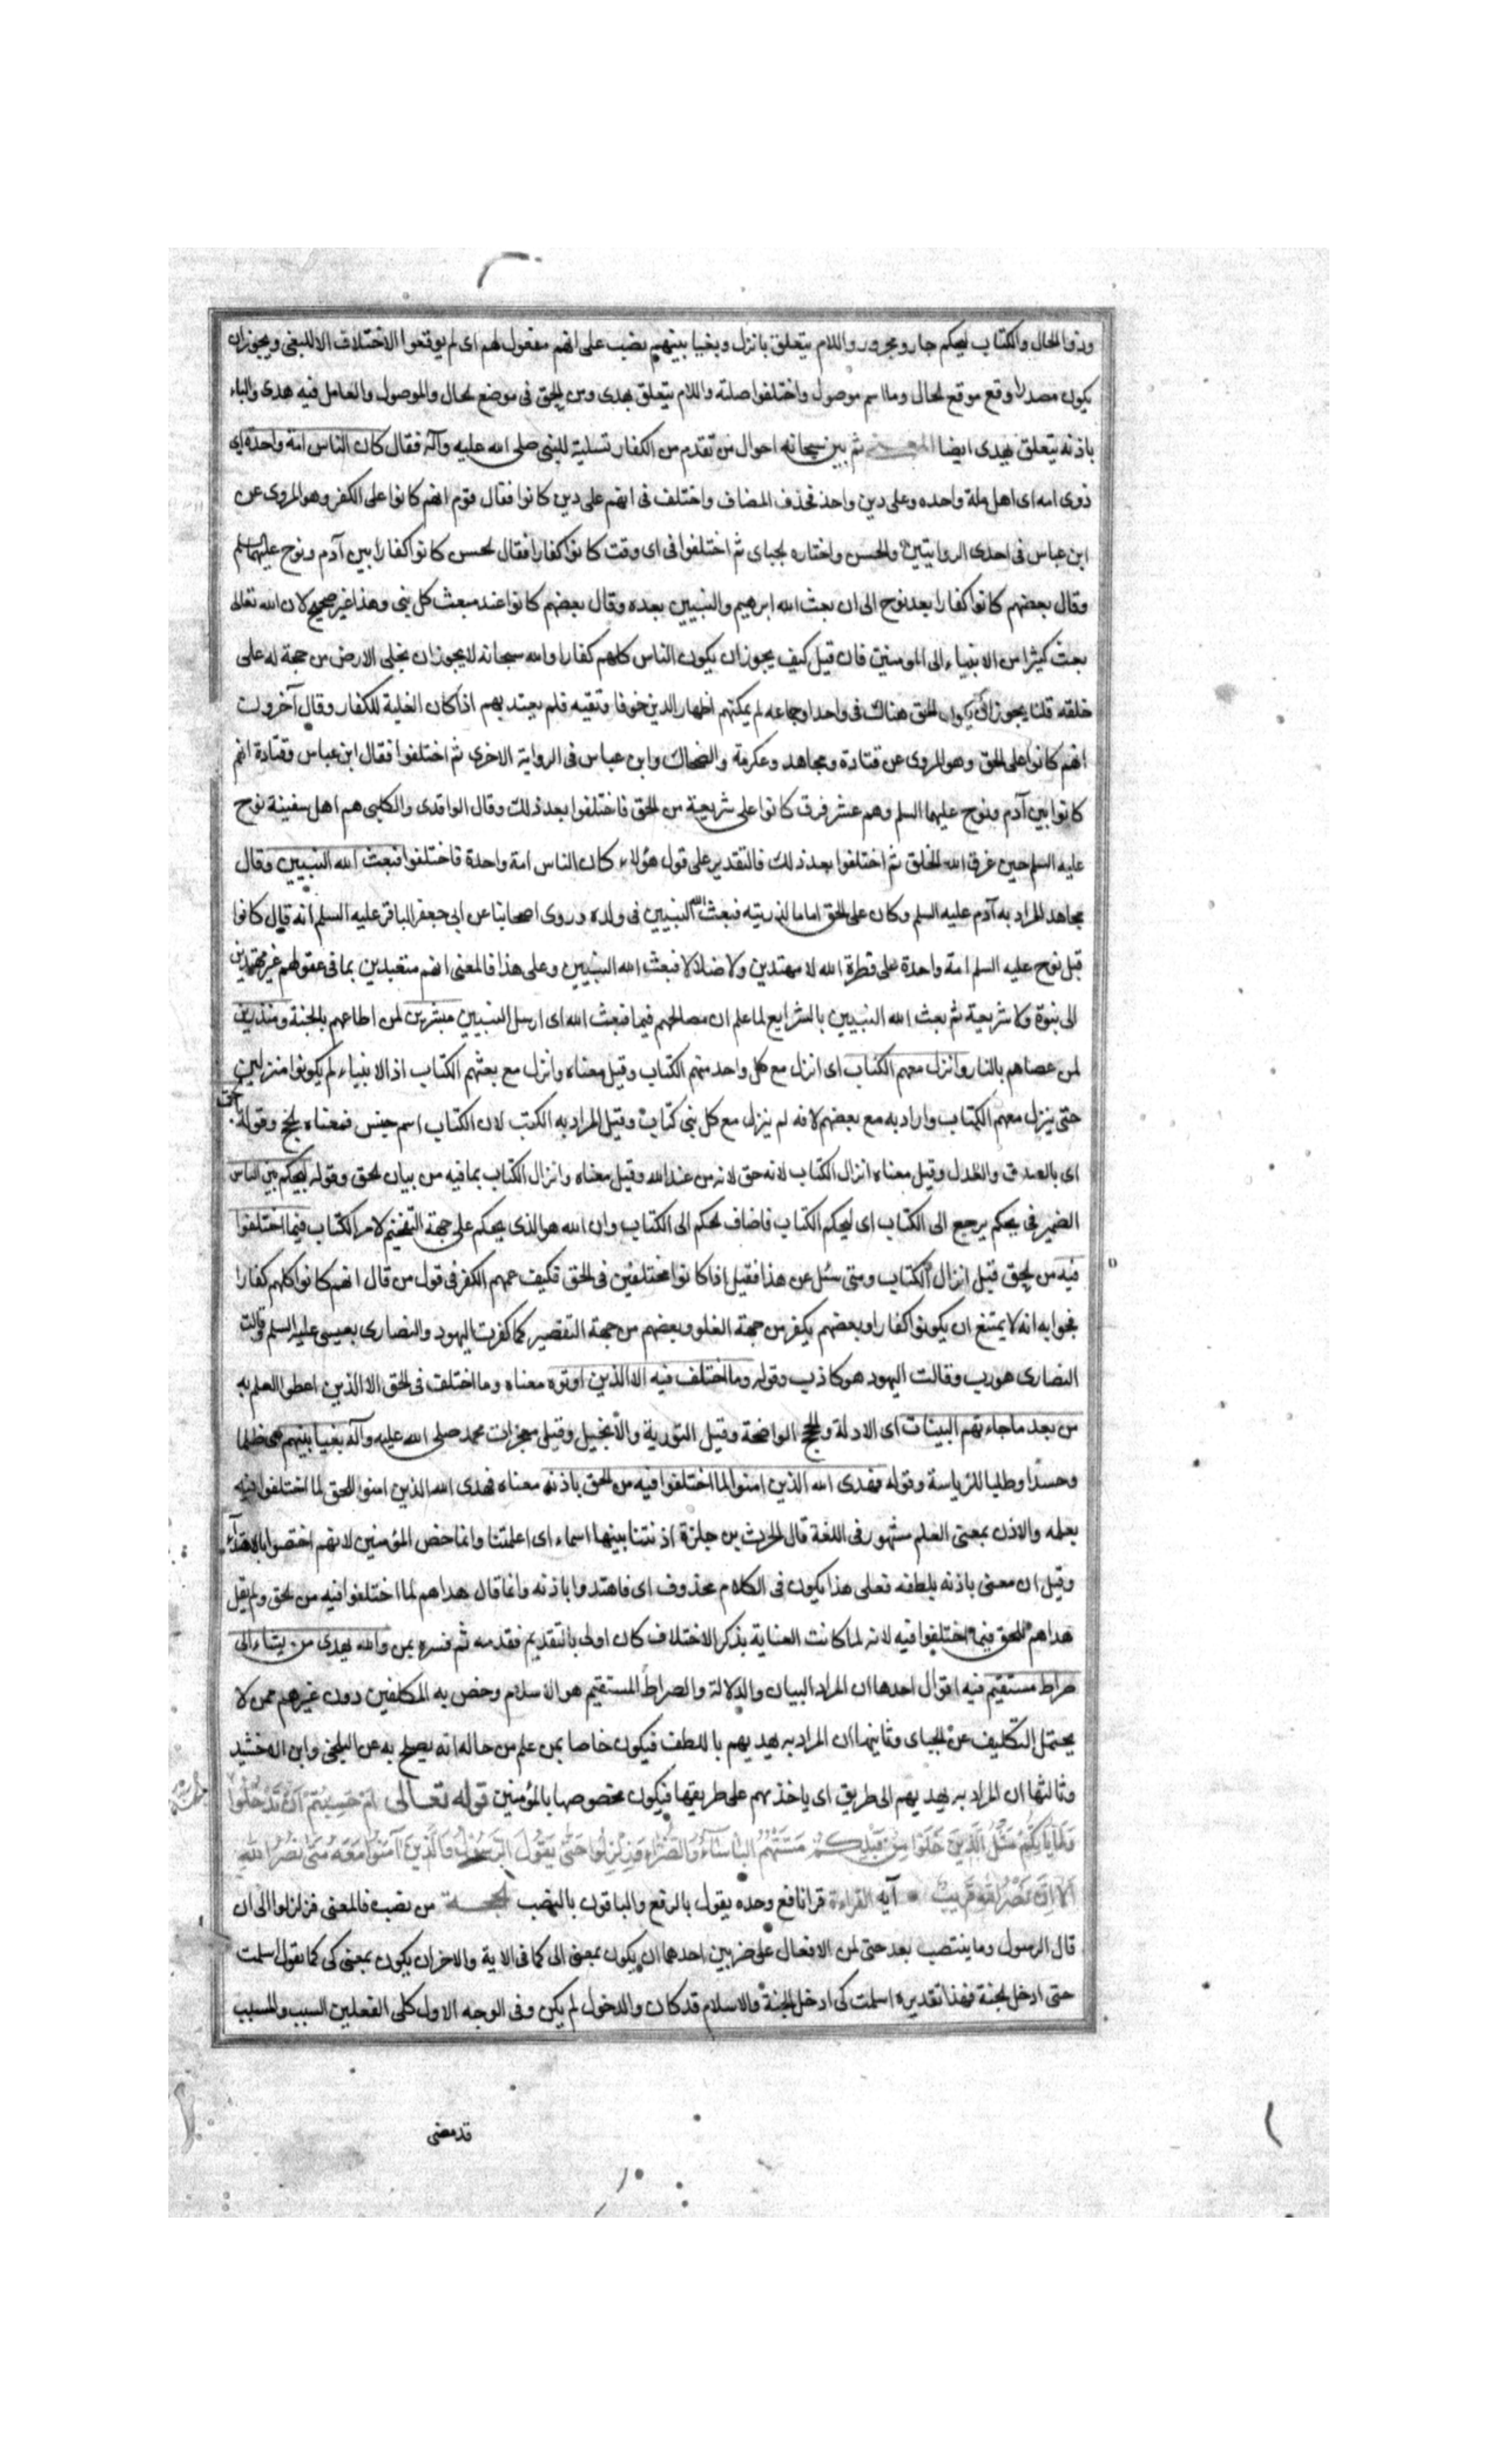 وذو الحال والكتاب ليحكم جار ومجرور واللام يتعلق بانزل وبغيا بينهم نصب على انهم مفعول لهم اى لم يوقعوا الاختلاف الا للبغى ويجوز ان
يكون مصدرا وقع موقع الحال وما اسم موصول واختلفوا صلته واللام يتعلق بهدى ومن الحق فى موضع الحال والموصول والعامل فيه هدى والباء
باذنه يتعلق بهدى ايضا المعنى ثم بين سبحانه احوال من تقدم من الكفار تسلية للنبى صلى الله عليه وآله فقال كان الناس امة واحدة اى
ذوى امه اى اهل ملة واحده وعلى دين واحد فحذف المضاف واختلف فى انهم على دين كانوا فقال قوم انهم كانوا على الكفر وهو المروى عن
ابن عباس فى احدى الروايتين والحسن واختاره الجباى ثم اختلفوا فى اى وقت كانوا كفارا فقال الحسن كانوا كفارا بين آدم ونوح عليهما السلم
وقال بعضهم كانوا كفارا بعد نوح الى ان بعث الله ابرهيم والنبيين بعده وقال بعضهم كانوا عند مبعث كل نبى وهذا غير صحيح لان الله تعالى
بعث كثيرا من الانبياء الى المومنين فان قيل كيف يجوز ان يكون الناس كلهم كفارا والله سبحانه لا يجوز ان يخلى الارض من حجة له على
خلقه قلنا يجوز ان يكون الحق هناك فى واحد او جماعه لم يمكنهم اظهار الدين خوفا وتقيه فلم يعتد بهم اذا كان الغلبة للكفار وقال آخرون
انهم كانوا على الحق وهو المروى عن قتادة ومجاهد وعكرمة والضحاك وابن عباس فى الرواية الاخرى ثم اختلفوا فقال ابن عباس وقتادة انهم
كانوا بين آدم ونوح عليهما السلم وهم عشر فرق كانوا على شريعة من الحق فاختلفوا بعد ذلك وقال الواقدى والكلبى هم اهل سفينة نوح
عليه السلم حين غرق الله الخلق ثم اختلفوا بعد ذلك فالتقدير على قول هؤلاء كان الناس امة واحدة فاختلفوا فبعث الله النبيين وقال
مجاهد المراد به آدم عليه السلم وكان على الحق اماما لذريته فبعث الله النبيين فى ولده وروى اصحابنا عن ابى جعفر الباقر عليه السلم انه قال كانوا
قبل نوح عليه السلم امة واحدة على فطرة الله لا مهتدين ولا ضلالا فبعث الله النبيين وعلى هذا فالمعنى انهم متعبدين بما فى عقولهم غير مهتدين
الى نبوة ولا شريعة ثم بعث الله النبيين بالشرايع لما علم ان مصالحهم فيها فبعث الله اى ارسل النبيين مبشرين لمن اطاعهم بالجنة ومنذرين
لمن عصاهم بالنار وانزل معهم الكتاب اى انزل مع كل واحد منهم الكتاب وقيل معناه وانزل مع بعثهم الكتاب اذ الانبياء لم يكونوا منزلين
حتى ينزل معهم الكتاب واراد به مع بعضهم لانه لم ينزل مع كل نبى كتاب وقيل المراد به الكتب لان الكتاب اسم جنس فمعناه الجمع وقوله بالحق
اى بالصدق والعدل وقيل معناه انزال الكتاب لانه حق لانه من عند الله وقيل معناه وانزال الكتاب بما فيه من بيان الحق وقوله ليحكم بين الناس
الضمير فى يحكم يرجع الى الكتاب اى ليحكم الكتاب فاضاف الحكم الى الكتاب وان الله هو الذى يحكم على جهة التفخيم لامر الكتاب فيما اختلفوا
فيه من الحق قبل انزال الكتاب ومتى سئل عن هذا فقيل اذا كانوا مختلفين فى الحق فكيف عمهم الكفر فى قول من قال انهم كانوا كلهم كفارا
فجوابه انه لا يمتنع ان يكونوا كفارا وبعضهم يكفر من جهة الغلو وبعضهم من جهة التقصير كما كفرت اليهود والنصارى بعيسى عليه السلم قالت
النصارى هو رب وقالت اليهود هو كاذب وقوله وما اختلف فيه الا الذين اوتوه معناه وما اختلف فى الحق الا الذين اعطى العلم به
من بعد ما جاءتهم البينات اى الادلة والحجج الواضحة وقيل التورية والانجيل وقيل معجزات محمد صلى الله عليه وآله بغيا بينهم اى ظلما
وحسدا وطلبا للرياسة وقوله فهدى الله الذين امنوا لما اختلفوا فيه من الحق باذنه معناه فهدى الله الذين امنوا للحق لما اختلفوا فيه
بعلمه والاذن بمعنى العلم مشهور فى اللغة قال الحرث بن حلزة اذنتنا ببينها اسماء اى اعلمتنا وانما خص المؤمنين لانهم اختصوا بالاهتداء
وقيل ان معنى باذنه بلطفه فعلى هذا يكون فى الكلام محذوف اى فاهتدوا باذنه وانما قال هداهم لما اختلفوا فيه من الحق ولم يقل
هداهم للحق فيما اختلفوا فيه لانه لما كانت العناية بذكر الاختلاف كان اولى بالتقديم فقدمه ثم فسره بمن والله يهدى من يشاء الى
صراط مستقيم فيه اقوال احدها ان المراد البيان والدلالة والصراط المستقيم هو الاسلام وخص به المكلفين دون غيرهم ممن لا
يحتمل التكليف عن الجباى وثانيها ان المراد به يهديهم باللطف فيكون خاصا بمن علم من حاله انه يصلح به عن البلخى وابن الاخشيد
وثالثها ان المراد به يهديهم الى طريق اى ياخذ بهم على طريقها فيكون مخصوصا بالمؤمنين قوله تعالى ام حسبتم ان تدخلوا
وَلَمَّا يَاتِكُمْ مَثَلُ الَّذِينَ خَلَوْا مِنْ قَبْلِكُمْ مَسَّتْهُمُ الْبَأْسَاءُ وَالضَّرَّاءُ وَزُلْزِلُوا حَتَّى يَقُولَ الرَّسُولُ وَالَّذِينَ آمَنُوا مَعَهُ مَتَى نَصْرُ اللَّهِ
اَلَا اِنَّ نَصْرَ اللَّهِ قَرِيبٌ آيه القراءة قرا نافع وحده يقول بالرفع والباقون بالنصب الحجة من نصب فالمعنى فزلزلوا الى ان
قال الرسول وما ينتصب بعد حتى من الافعال على ضربين احدهما ان يكون بمعنى الى كما فى الاية والاخر ان يكون بمعنى كى كما تقول اسلمت
حتى ادخل الجنة فهذا تقديره اسلمت كى ادخل الجنة والاسلام قد كان والدخول لم يكن وفى الوجه الاول كلى الفعلين السبب والمسبب
قد مضى